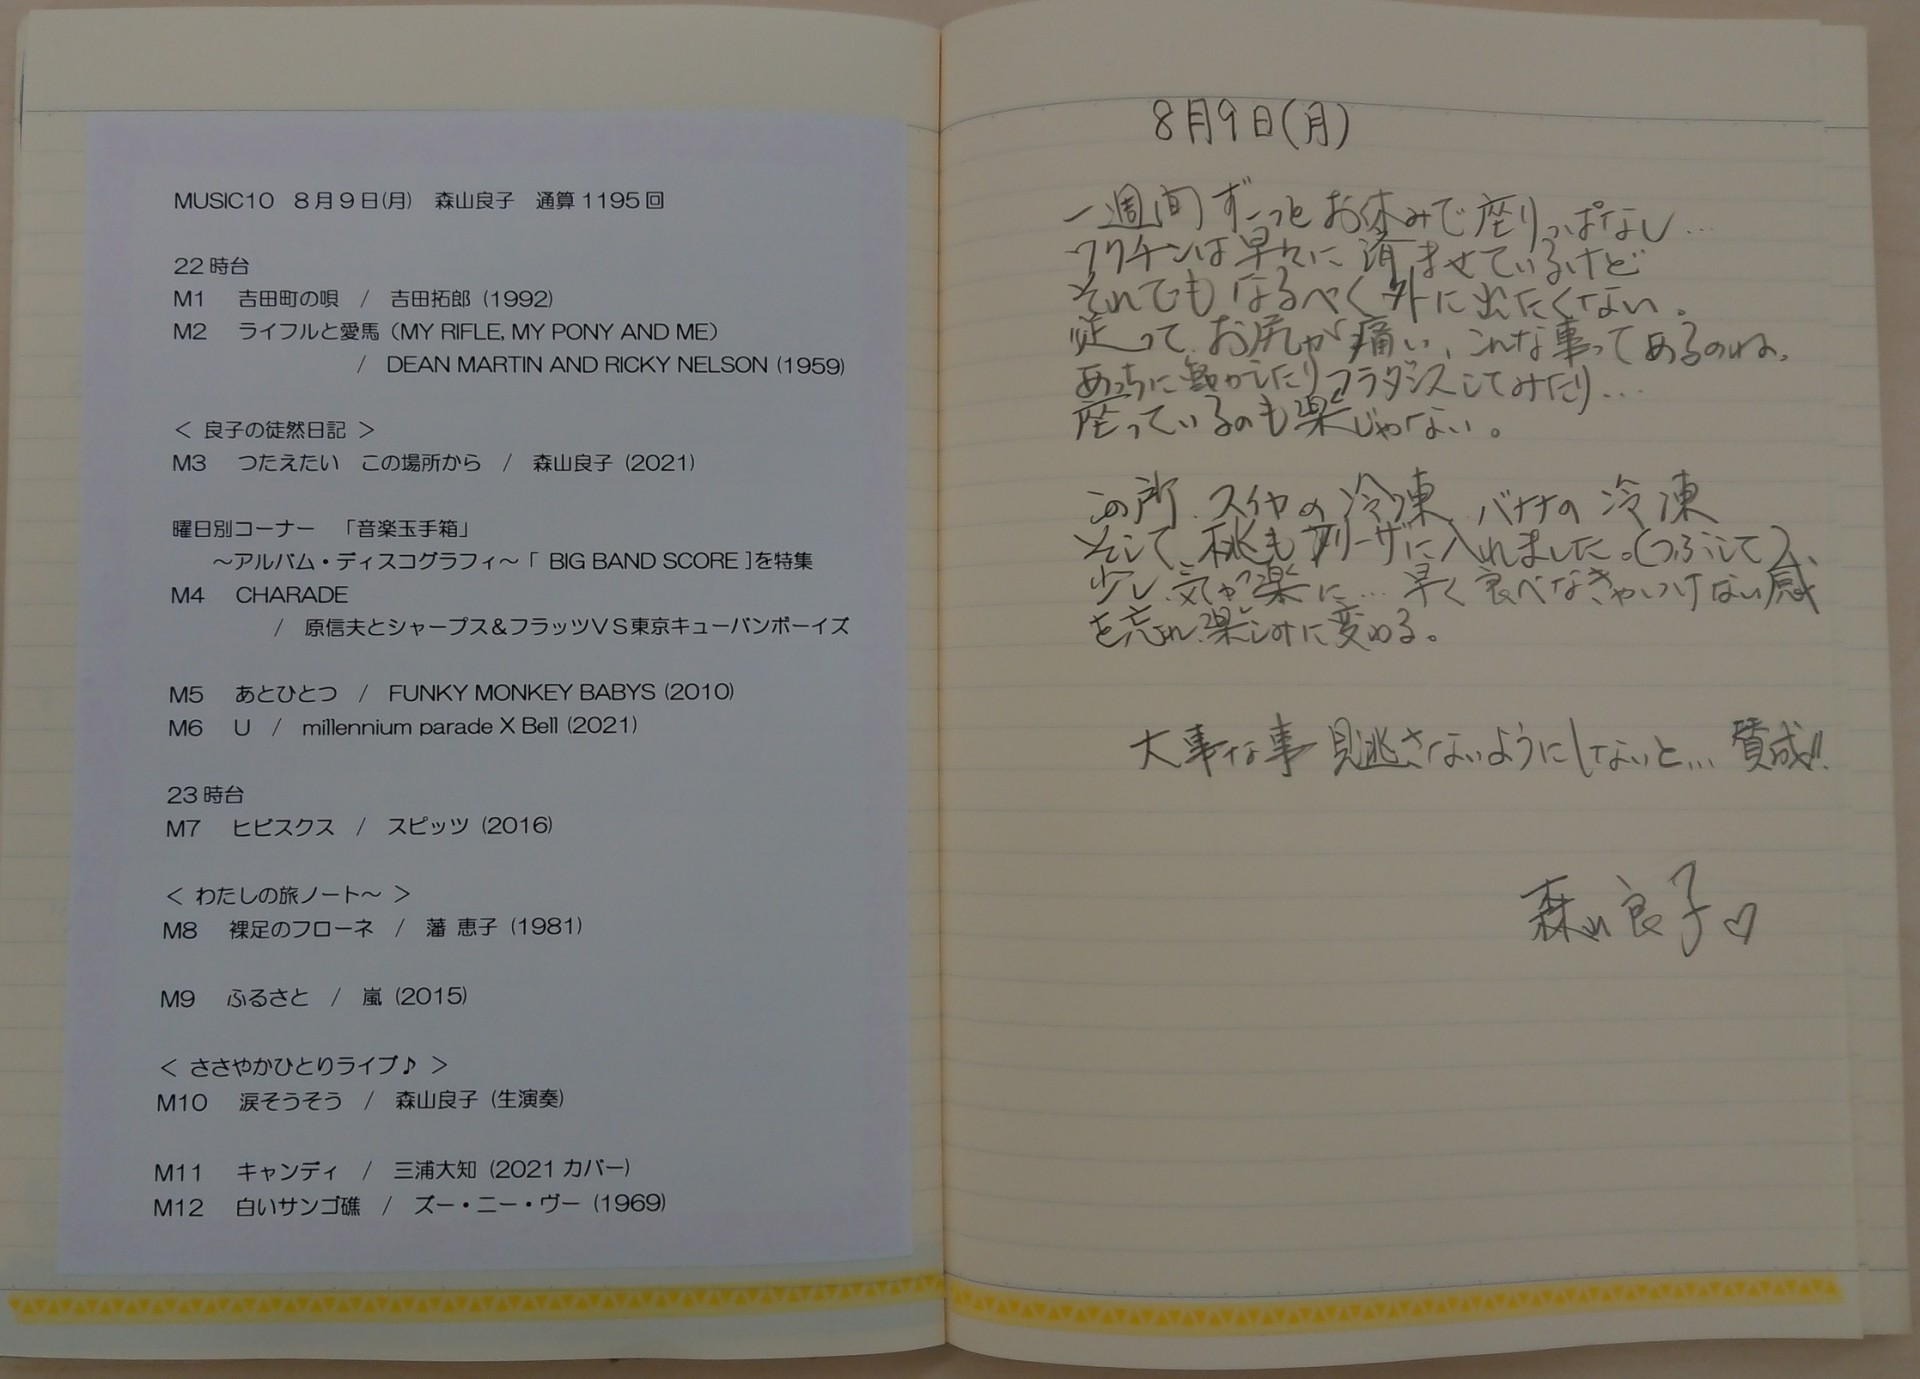 MUSIC10 8月9日(月) 森山良子 通算1195回
22時台
M1 吉田町の唄 / 吉田拓郎 (1992)
M2 ライフルと愛馬 (MY RIFLE, MY PONY AND ME)
/ DEAN MARTIN AND RICKY NELSON (1959)
< 良子の徒然日記 >
M3 つたえたい この場所から / 森山良子 (2021)
曜日別コーナー 「音楽玉手箱」
～アルバム・ディスコグラフィ～「 BIG BAND SCORE ]を特集
M4 CHARADE
/ 原信夫とシャープス&フラッツVS東京キューバンボーイズ
M5 あとひとつ / FUNKY MONKEY BABYS (2010)
M6 U / millennium parade X Bell (2021)
23時台
M7 ヒビスクス / スピッツ (2016)
< わたしの旅ノート～ >
M8 裸足のフローネ / 藩 恵子 (1981)
M9 ふるさと / 嵐 (2015)
< ささやかひとりライブ♪ >
M10 涙そうそう / 森山良子 (生演奏)
M11 キャンディ / 三浦大知 (2021 カバー)
M12 白いサンゴ礁 / ズー・ニー・ヴー (1969)
8月9日(月)
一週間ずーっとお休みで座りっぱなし…
ワクチンは早々に済ませているけど
それでもなるべく外に出たくない。
従って、お尻が痛い、こんな事ってあるのね。
あっちに動かしたりフラダンスしてみたり…
座っているのも楽じゃない。
この所、スイカの冷凍、バナナの冷凍
そして、桃もフリーザに入れました。(つぶして)、
少し気が楽に… 早く食べなきゃいけない感
を忘れ、楽しみに変わる。
大事な事見逃さないようにしないと… 賛成!!
森山良子♡